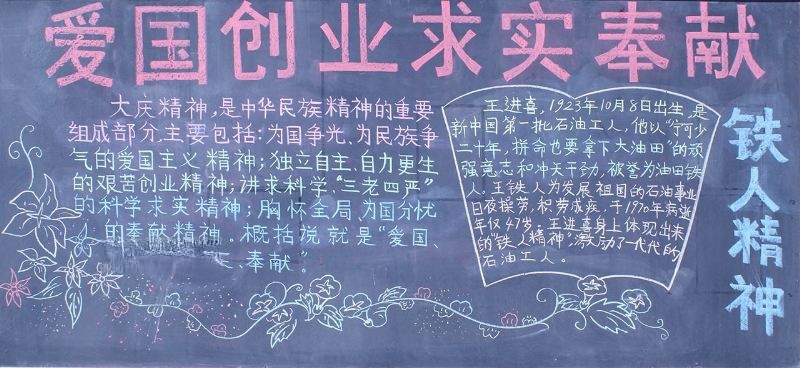 爱国创业求实奉献
大庆精神,是中华民族精神的重要
组成部分,主要包括:为国争光、为民族争
气的爱国主义精神;独立自主、自力更生
的艰苦创业精神;讲求科学、“三老四严”
的科学求实精神;胸怀全局、为国分忧
的奉献精神。概括说就是“爱国、
奉献”。
王进喜,1923年10月8日出生,是
新中国第一批石油工人,他以“宁可少
二十年,拼命也要拿下大油田”的顽
强意志和冲天干劲,被誉为油田铁
人,王铁人为发展祖国的石油事业
日夜操劳,积劳成疾,于1970年病逝
年仅47岁。王进喜身上体现出来
的“铁人精神”,激励了一代代的
石油工人。
铁人精神